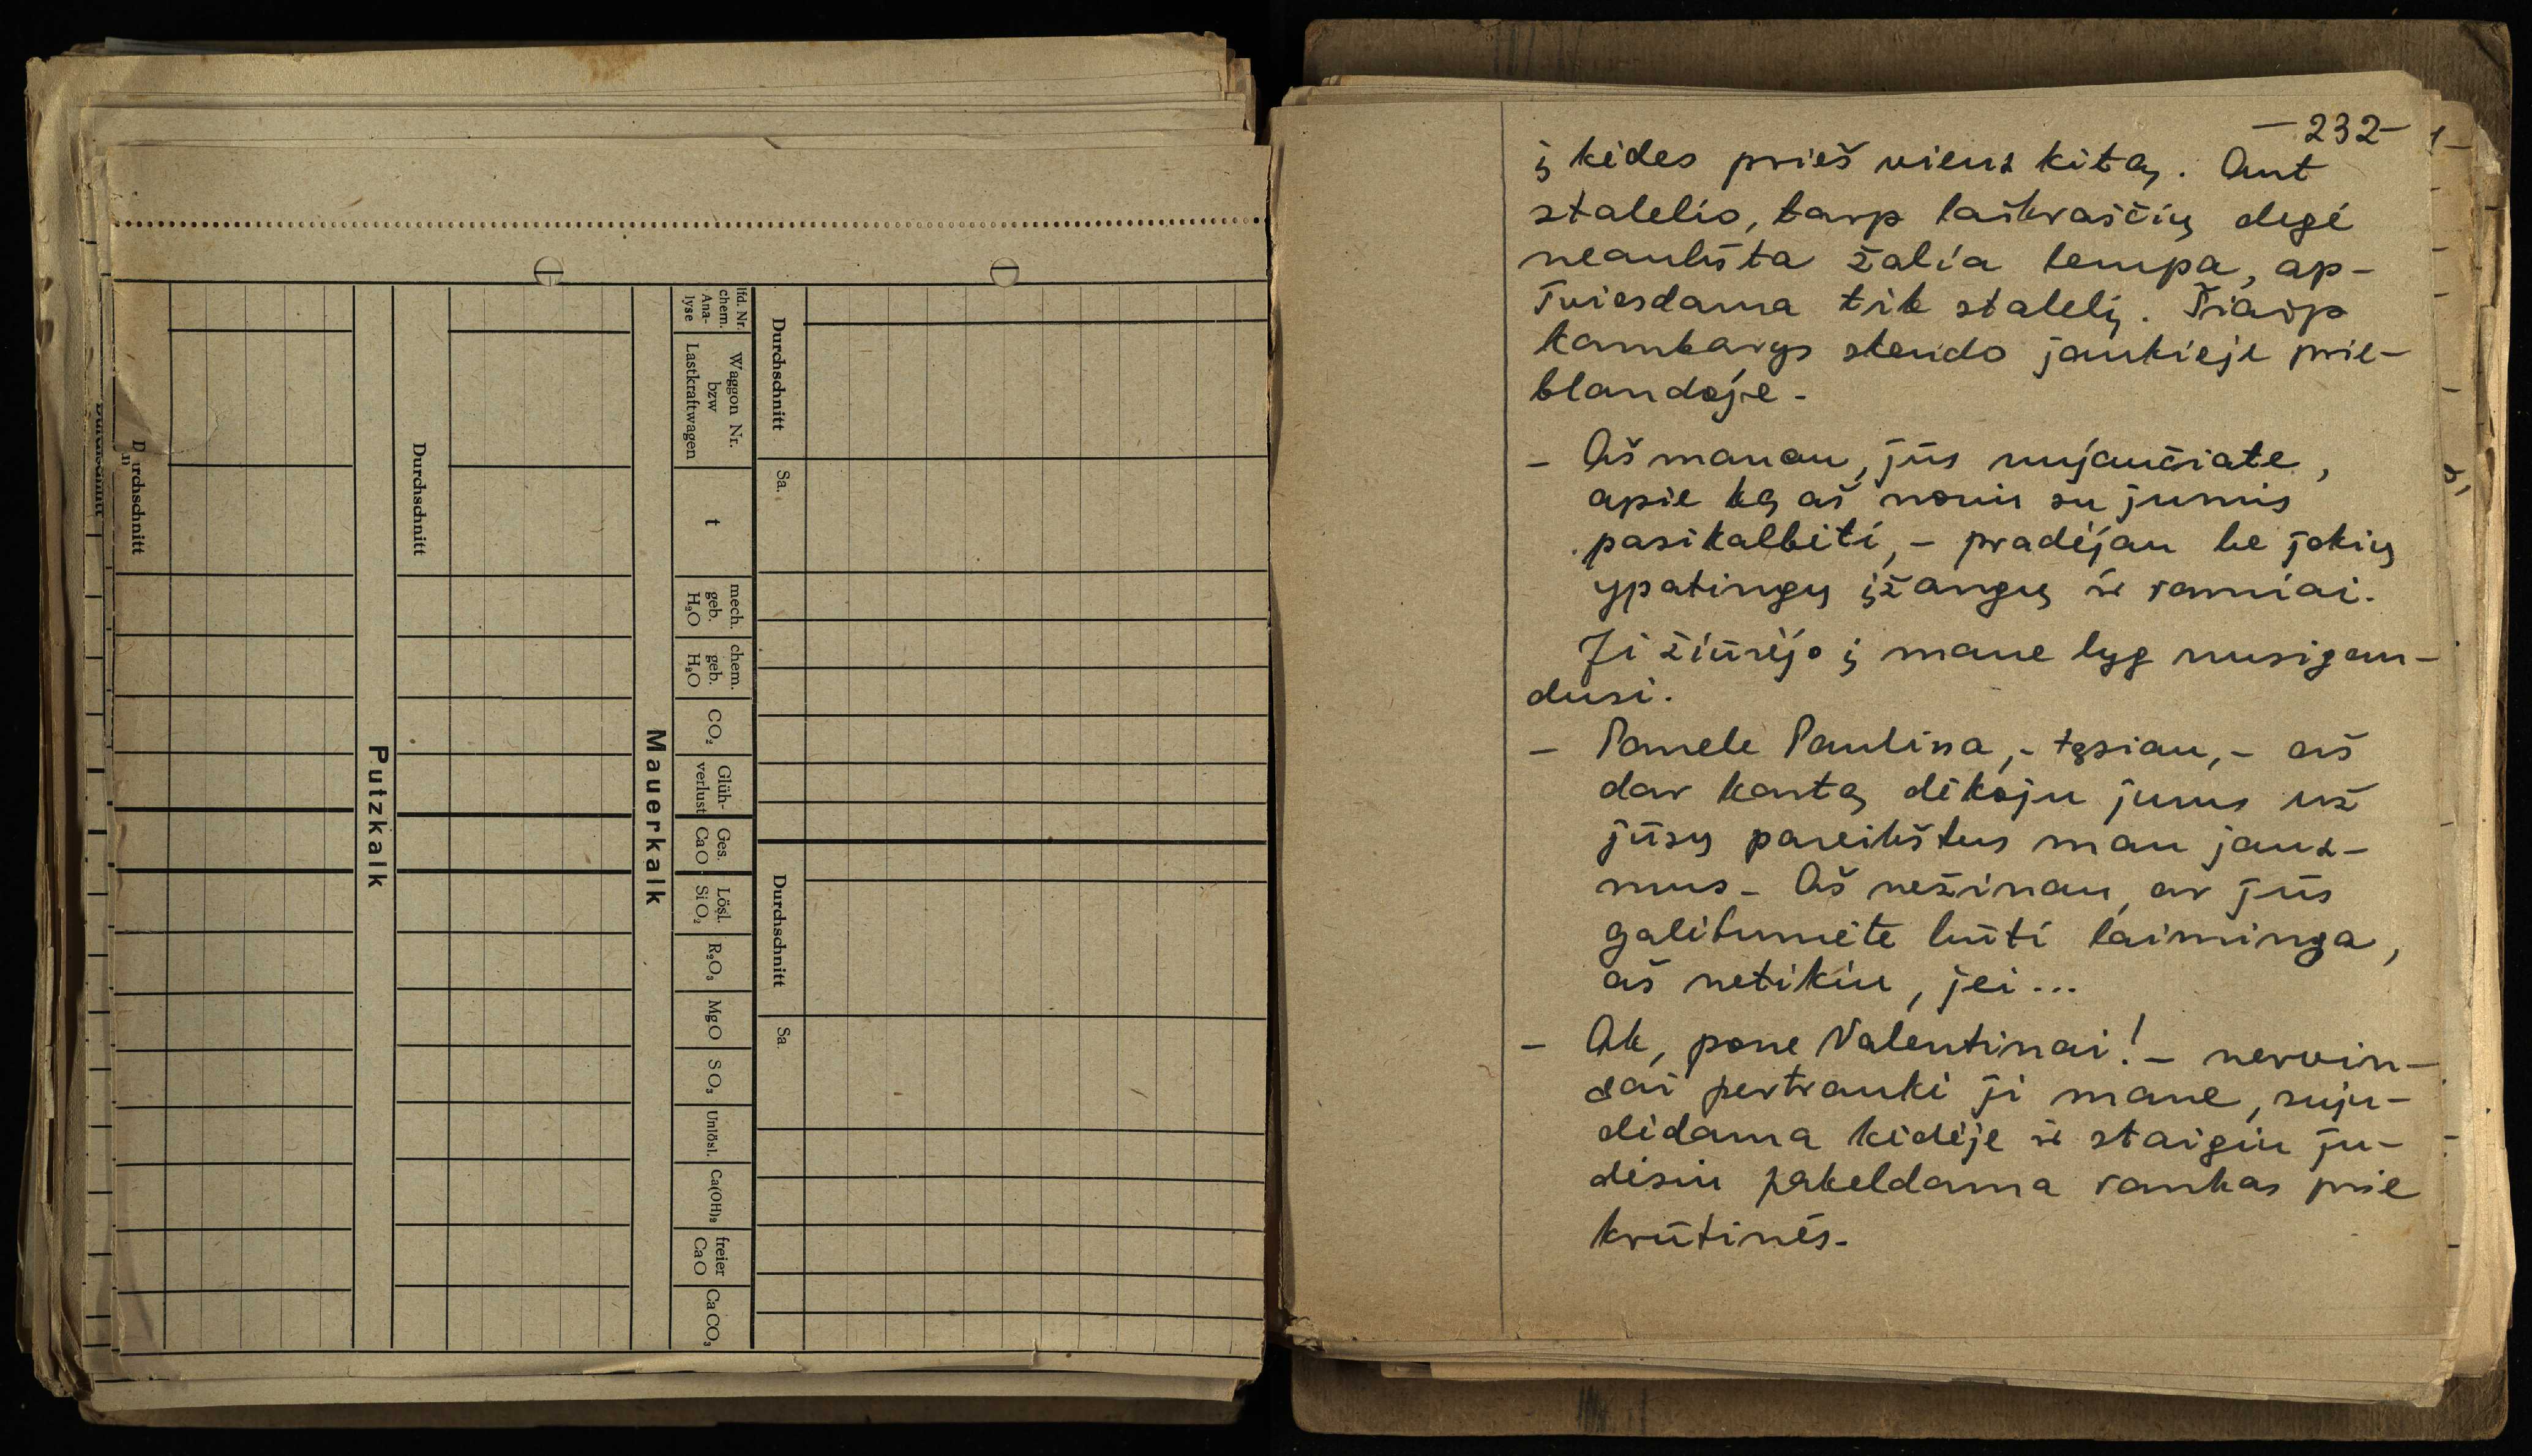 Durchschnitt
Durchschnitt
Putzkalk
Durchschnitt
Mauerkalk
lfd. Nr.
chem.
Ana-
lyse
Waggon Nr.
bzw
Lastkraftwagen
t
mech.
geb.
H₂O
chem.
geb.
H₂O
CO₂
Glüh-
verlust
Ges.
CaO
Lösl.
SiO₂
R₂O₃
MgO
SO₃
Unlösl.
Ca(OH)₂
freier
CaO
CaCO₃
Durchschnitt
Sa.
Durchschnitt
Sa.
—232—
į kėdes prieš viens kitą. Ant
stalelio, tarp laikraščių degė
neaukšta žalia lempa, ap-
šviesdama tik stalelį. Šiaip
kambarys skendo jaukioje prie-
blandoje.
– Aš manau, jūs nujaučiate,
apie ką aš noriu su jumis
pasikalbėti, – pradėjau be jokių
ypatingų įžangų ir ramiai.
Ji žiūrėjo į mane lyg nusigan-
dusi.
– Panele Paulina, – tęsiau, – aš
dar kartą dėkoju jums už
jūsų pareikštus man jaus-
mus. Aš nežinau, ar jūs
galėtumėte būti laiminga,
aš netikiu, jei...
– Ak, pone Valentinai! – nervin-
gai pertraukė ji mane, suju-
dėdama kėdėje ir staigiu ju-
desiu pakeldama rankas prie
krūtinės.